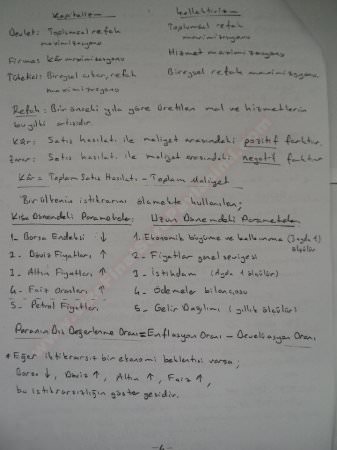 Kapitalizm Kollektivizm
Devlet: Toplumsal refah Toplumsal refah
maximizasyonu maximizasyonu
Firma: Kâr maximizasyonu Hizmet maximizasyonu
Tüketici: Bireysel çıkar, refah Bireysel refah maximizasyonu
maximizasyonu
Refah: Bir önceki yıla göre üretilen mal ve hizmetlerin
bu yılki artışıdır.
Kâr: Satış hasılatı ile maliyet arasındaki pozitif farktır.
Zarar: Satış hasılatı ile maliyet arasındaki negatif farktır.
Kâr = Toplam Satış Hasılatı - Toplam Maliyet
Bir ülkenin istikrarını ölçmekte kullanılan;
Kısa Dönemdeki Parametreler Uzun Dönemdeki Parametreler
1- Borsa Endeksi ↓ 1- Ekonomik büyüme ve kalkınma (3 ayda 1 ölçülür)
2- Döviz Fiyatları ↑ 2- Fiyatlar genel seviyesi
3- Altın Fiyatları ↑ 3- İstihdam (Ayda 1 ölçülür)
4- Faiz Oranları ↑ 4- Ödemeler bilançosu
5- Petrol Fiyatları 5- Gelir Dağılımı (yıllık ölçülür)
Paranın Dış Değerlenme Oranı = Enflasyon Oranı - Devalüasyon Oranı
* Eğer istikrarsız bir ekonomi beklentisi varsa;
Borsa ↓, Döviz ↑, Altın ↑, Faiz ↑,
bu istikrarsızlığın göstergesidir.
-4-